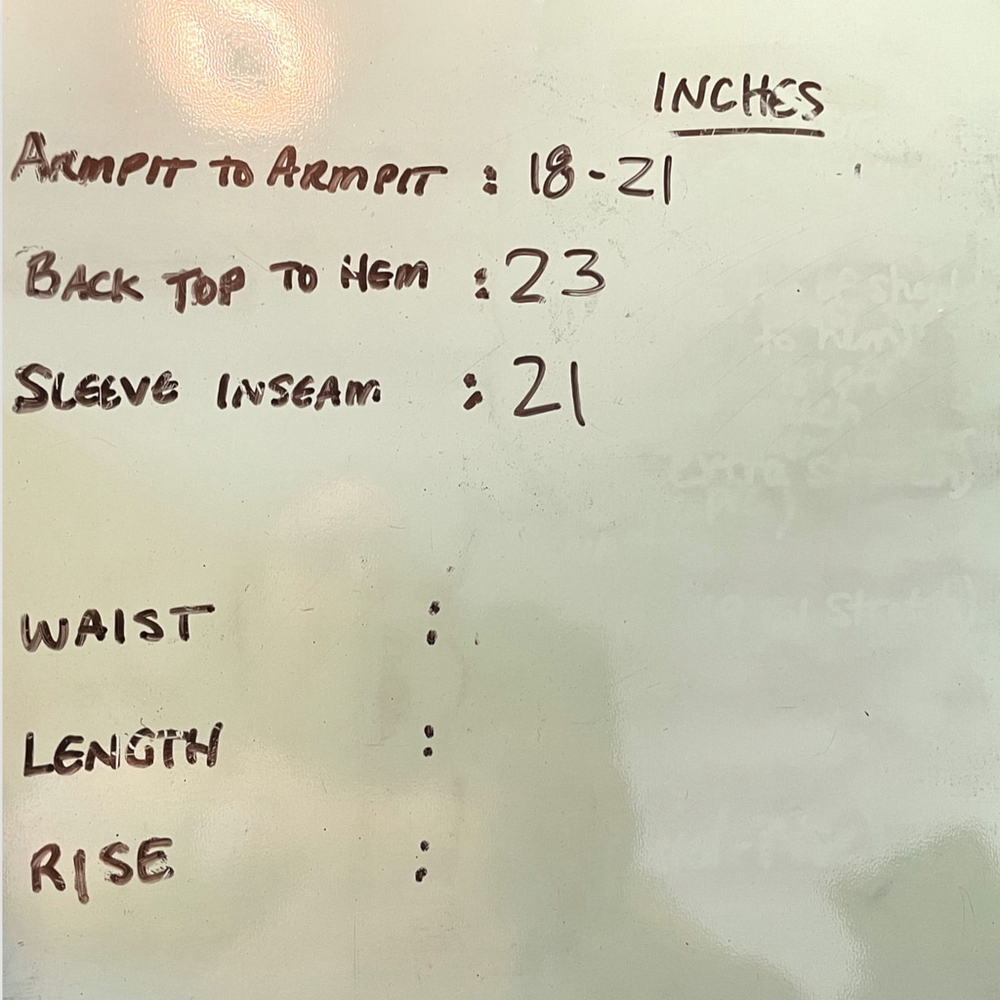 INCHES
ARMPIT TO ARMPIT : 18-21
BACK TOP TO HEM : 23
SLEEVE INSEAM : 21
WAIST :
LENGTH :
RISE :